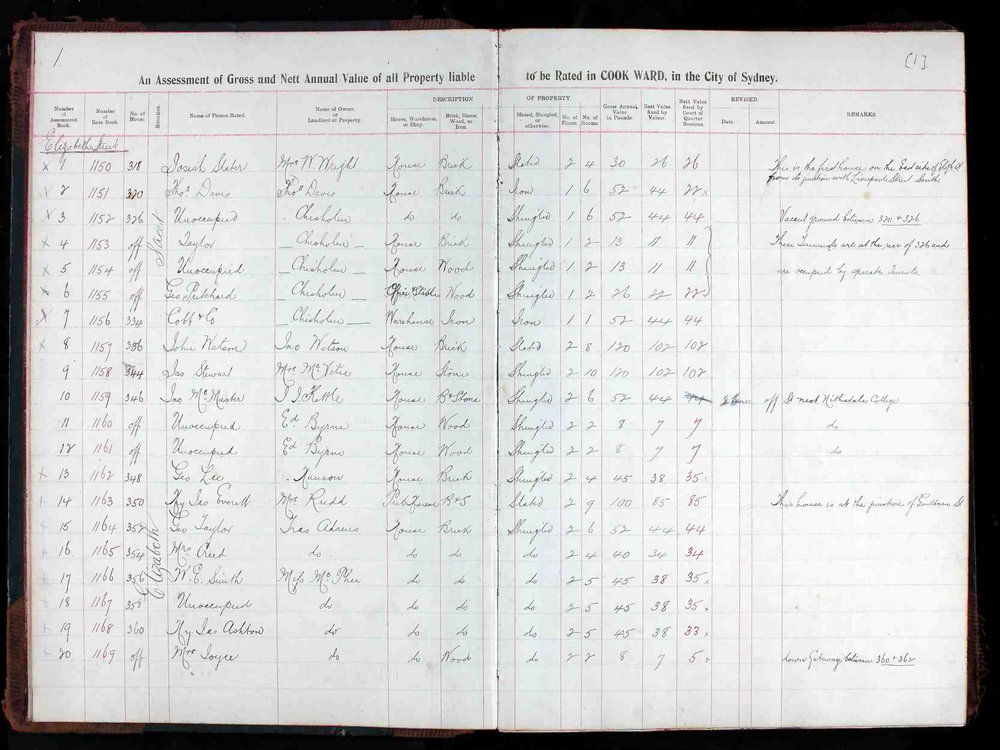 1
[1]
An Assessment of Gross and Nett Annual Value of all Property liable to be Rated in COOK WARD, in the City of Sydney.
Number of Assessment Book. Number of Rate Book. No. of House. Situation Name of Person Rated. Name of Owner, or Landlord of Property. DESCRIPTION OF PROPERTY. House, Warehouse, or Shop. Brick, Stone, Wood, or Iron. Slated, Shingled, or otherwise. No. of Floors. No. of Rooms. Gross Annual Value in Pounds. Nett Value fixed by Valuer. Nett Value fixed by Court of Quarter Sessions. REVISED. Date. Amount. REMARKS.
Elizabeth Street
x 1 1150 318 Josiah Slater Mrs W Wright House Brick Slated 2 4 30 26 26 This is the first house on the East side of Eliz St
from its junction with Liverpool Street South
x 2 1151 320 Thos Davis Thos Davis House Brick Iron 1 6 52 44 22 x
x 3 1152 326 Unoccupied - Chisholm do do Shingled 1 6 52 44 44 Vacant ground between 320 & 326
x 4 1153 off Taylor - Chisholm - House Brick Shingled 1 2 13 11 11 These Tenements are at the rear of 326 and
x 5 1154 off Unoccupied - Chisholm - House Wood Shingled 1 2 13 11 11 are occupied by separate Tenants.
x 6 1155 off Geo Pritchard - Chisholm - Office & Stable Wood Shingled 1 2 26 22 22
x 7 1156 334 Cobb & Co - Chisholm - Warehouse Iron Iron 1 1 52 44 44
x 8 1157 336 John Watson Jno Watson House Brick Slated 2 8 120 102 102
9 1158 344 Jas Stewart Mrs House Stone Shingled 2 10 120 102 102
10 1159 346 Jno McMaster J. J. Kettle House B & Stone Shingled 2 6 52 44 off St next Nithsdale College
11 1160 off Unoccupied Ed Byrne House Wood Shingled 2 2 8 7 7 do
12 1161 off Unoccupied Ed Byrne House Wood Shingled 2 2 8 7 7 do
x 13 1162 348 Geo Lee . House Brick Shingled 2 4 45 38 35
x 14 1163 350 Hy Jas Everett Mrs Rudd Pub House B & S Slated 2 9 100 85 85 This house is at the junction of Goulburn St
15 1164 352 Geo Taylor Fras Adams House Brick Shingled 2 6 52 44 44
16 1165 354 Mrs Creed do do do do 2 4 40 34 34
17 1166 356 W. E. Smith Miss do do do 2 5 45 38 35 x
18 1167 358 Unoccupied do do do do 2 5 45 38 35
19 1168 360 Hy Jas Ashton do do do do 2 5 45 38 33
20 1169 off Mrs Joyce do do Wood do 2 2 8 7 5 + down Gateway between 360 & 362
Elizabeth Street